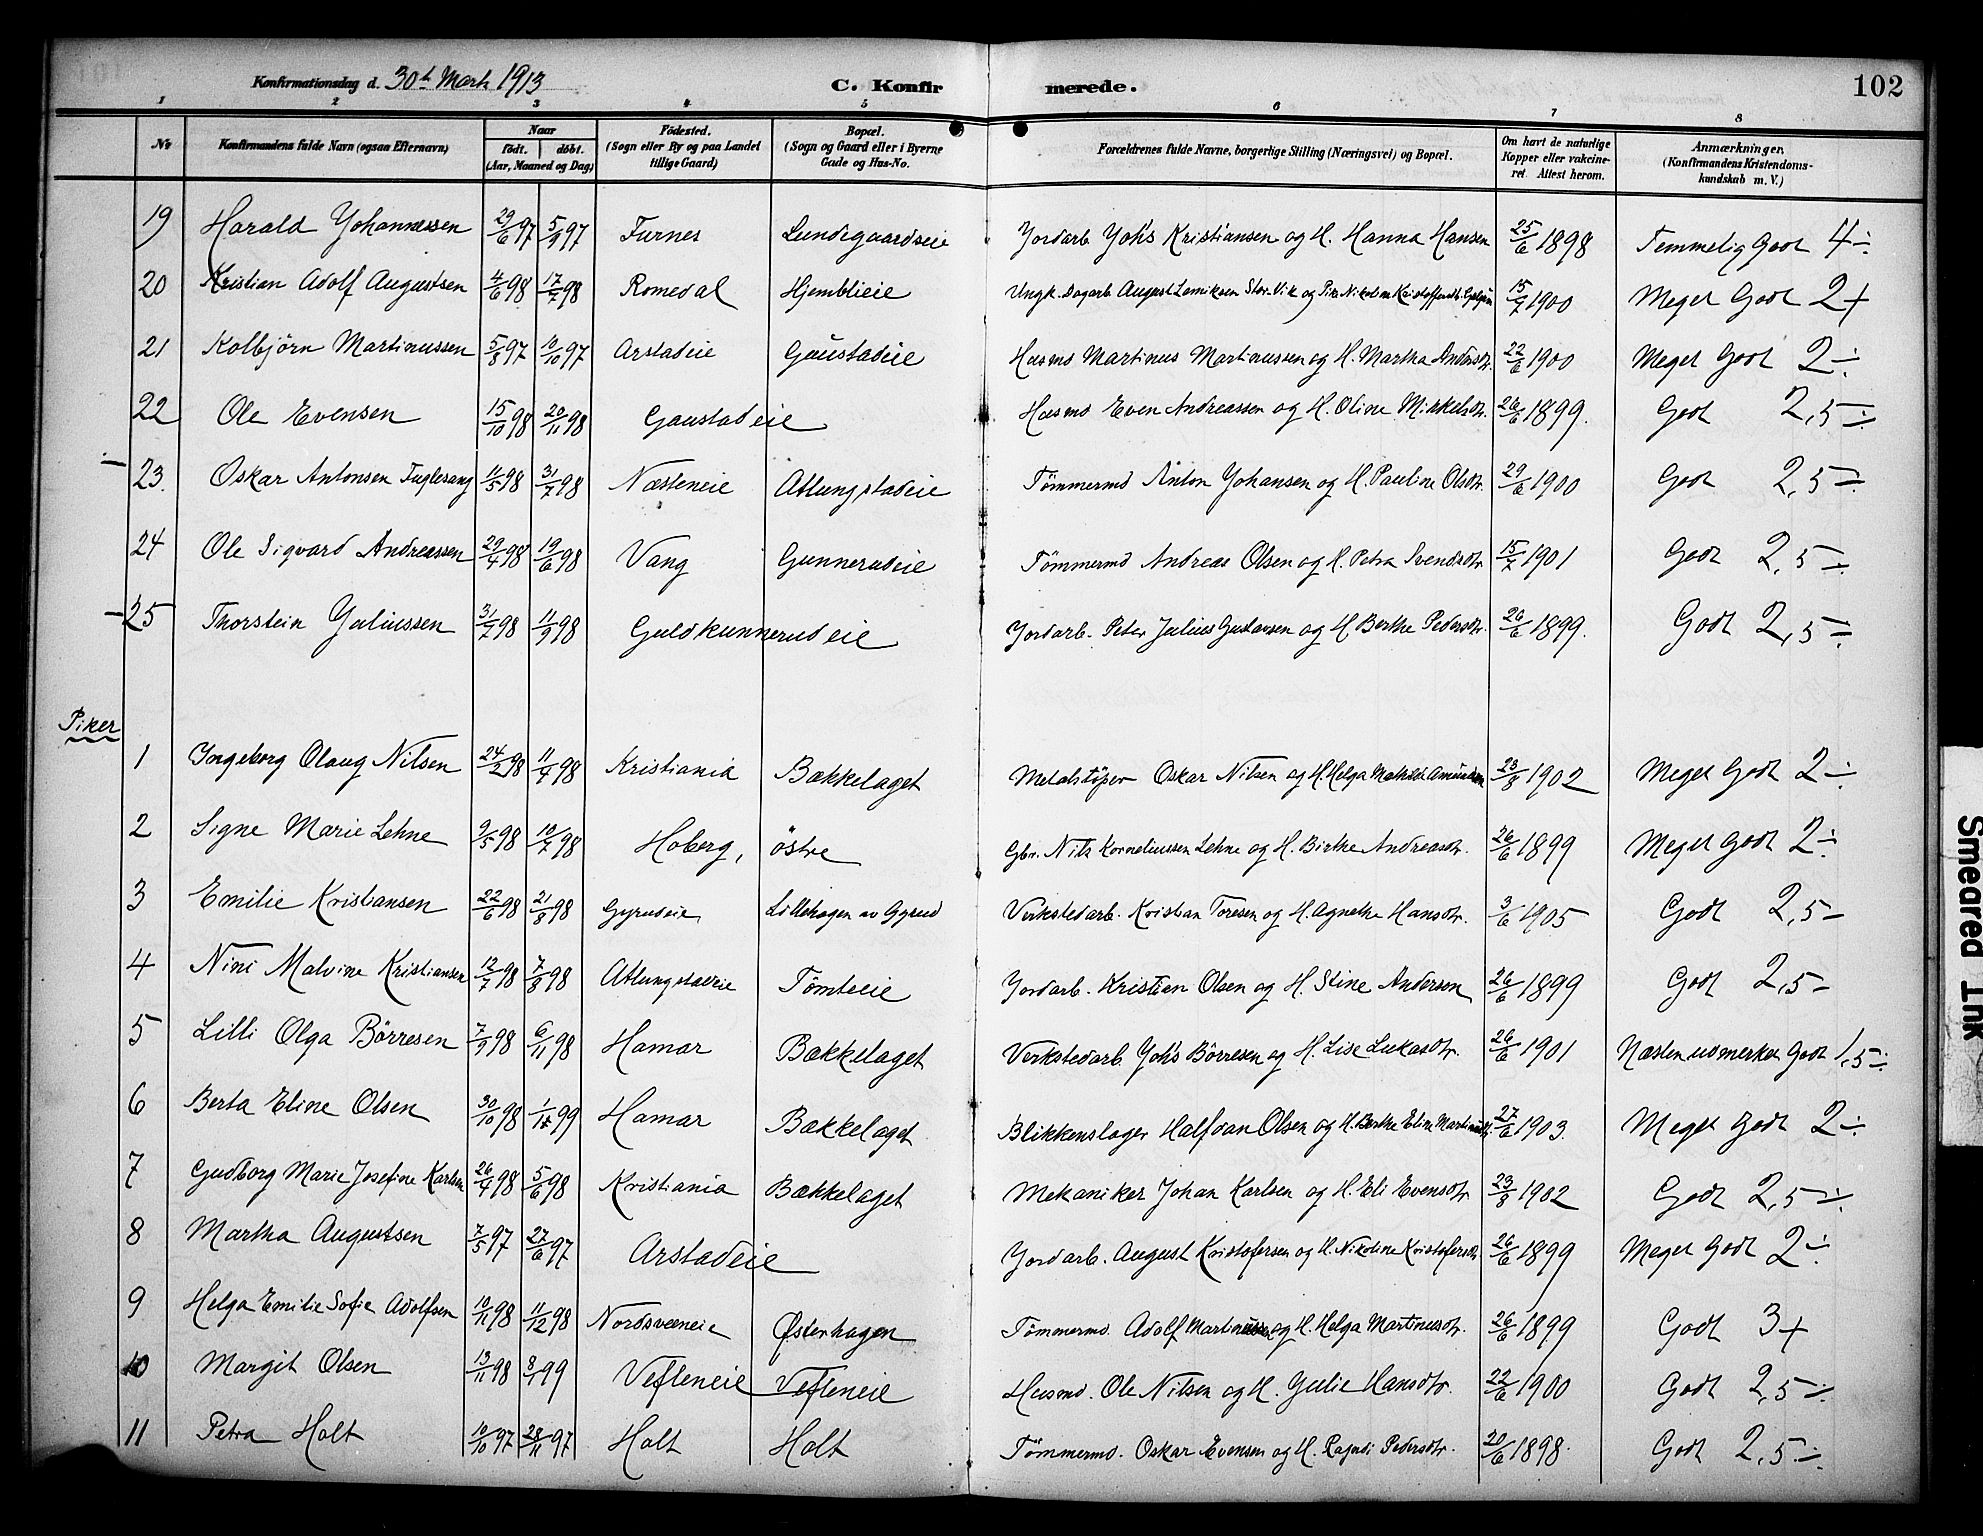 Konfirmationsdag d. 30te Marts 1913 C. Konfirmerede. 102
1 2 3 4 5 6 7 8
Nr Konfirmandens fulde Navn (ogsaa Efternavn) Naar født. døbt. (Aar, Maaned og Dag) Fødested. (Sogn eller By og paa Landet tillige Gaard) Bopæl. (Sogn og Gaard eller i Byerne Gade og Hus-No. Forældrenes fulde Navne, borgerlige Stilling (Næringsvei) og Bopæl. Om havt de naturlige Kopper eller vakcineret. Attest herom. Anmærkninger. (Konfirmandens Kristendomskundskab m. V.)
19 Harald Johannessen 29/6 97 5/9 97 Furnes Lundsgaardseie Jordarb. Johs Kristiansen og H. Hanna Hansen 25/6 1898 Temmelig Godt 4÷
20 Kristian Adolf Augustsen 4/6 98 17/7 98 Romedal Hjemblieie Ungk. Dagarb. August 15/7 1900 Meget Godt 2+
21 Kolbjörn Martinussen 5/8 97 10/10 97 Arstadeie Gaustadeie Husmd Martinus Martinussen og H. Martha Andersdtr. 22/6 1900 Meget Godt 2÷
22 Ole Evensen 15/10 98 20/11 98 Gaustadeie Husmd Even Andreassen og H. Oline Mikkelsdtr. 26/6 1899. Godt 2,5÷
23. Oskar Antonsen Fuglesang 11/5 98 31/7 98 Næsteneie Atlungstadeie Tömmermd Anton Johansen og H. Pauline Olsdtr. 29/6 1900 Godt 2,5÷
24 Ole Sigvard Andreassen 29/4 98 19/6 98 Vang Gunnerudeie Tömmermd Andreas Olsen og H. Petra Svendsdtr 15/7 1901 Godt 2,5÷
25 Thorstein Juliussen 31/7 98 11/9 98 Guldkunnerudeie Jordarb. Peter Julius Gustavsen og H. Berthe Pedersdtr. 26/6 1899. Godt 2,5÷
Piker
1 Ingeborg Olaug Nilsen 24/2 98 11/4 98 Kristiania Bækkelaget Metalstöper Oskar Nilsen og H. Helga Mathilde Amundsen 23/8 1902 Meget Godt 2÷
2 Signe Marie Lehne 9/5 98 10/7 98 Hoberg, östre Gbr. Nils Korneliussen Lehne og H. Birthe Andreasdtr. 26/6 1899 Meget Godt 2÷
3 Emilie Kristiansen 22/6 98 21/8 98 Gyrudeie Lillehagen av Gyrud Verkstedarb. Kristian Toresen og H. Agnethe Hansdtr. 3/6 1905 Godt 2,5÷
4 Nini Malvine Kristiansen 12/7 98 7/8 98 Atlungstadeie Tömteeie Jordarb. Kristian Olsen og H. Stine Andersen 26/6 1899 Godt 2,5÷
5 Lilli Olga Börresen 7/9 98 6/11 98 Hamar Bækkelaget Verkstedarb Johs Börresen og H. Lise Lukasdtr. 26/6 1901 Næsten udmerket Godt 1,5÷
6 Berta Eline Olsen 30/10 98 1/1 99 Hamar Bækkelaget Blikkenslager Halfdan Olsen og H. Berthe Eline 27/6 1903. Meget Godt 2÷
7 Gudborg Marie Josefine Karlsen 26/4 98 5/6 98 Kristiania Bækkelaget Mekaniker Johan Karlsen og H. Eli Evensdtr 23/8 1902 Godt 2,5÷
8 Martha Augustsen 7/5 97 27/6 97 Arstadeie Jordarb. August Kristofersen og H. Nikoline Kristofersdtr 26/6 1899 Meget Godt 2÷
9 Helga Emilie Sofie Adolfsen 10/11 98 11/12 98 Nordsveeneie Østenhagen Tömmermd. Adolf Martinussen og H. Helga Martinusdtr. 26/6 1899 Godt 3+
10 Margit Olsen 13/11 98 8/1 99 Vefleneie Vefleneie Husmd. Ole Nilsen og H. Julie Hansdtr. 22/6 1900 Godt 2,5÷
11 Petra Holt 10/10 97 28/11 97 Holt Holt Tömmermd. Oskar Evensen og H. Ragndi Pedersdtr. 20/6 1898. Godt 2,5÷
Smeared Ink